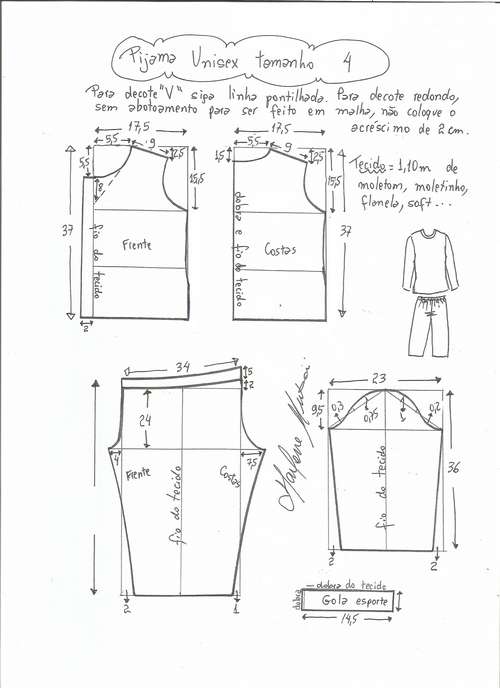 Pijama Unisex tamanho 4
Para decote "V" siga linha pontilhada. Para decote redondo,
sem abotoamento para ser feito em malha, não coloque o
acréscimo de 2 cm.
17,5
5,5
9
5,5
2,5
8
15,5
37
Frente
fio do tecido
2
17,5
5,5
9
1,5
2,5
15,5
37
Costas
dobra e fio do tecido
Tecido = 1,10m de
moletom, moletinho,
flanela, soft...
34
5
2
24
4
7,5
Frente
Costas
fio do tecido
2
1
Marlene Mukai
23
9,5
0,3
0,75
1
0,2
36
fio do tecido
2
2
dobra do tecido
dobra
Gola esporte
14,5